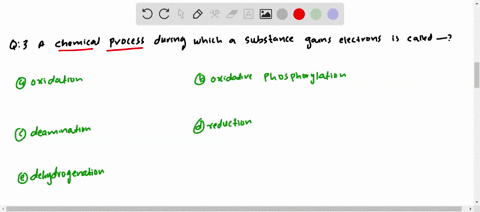 Q:3 A chemical process during which a substance gains electrons is called —?
ⓐ oxidation
ⓑ oxidative phosphorylation
ⓒ deamination
ⓓ reduction
ⓔ dehydrogenation